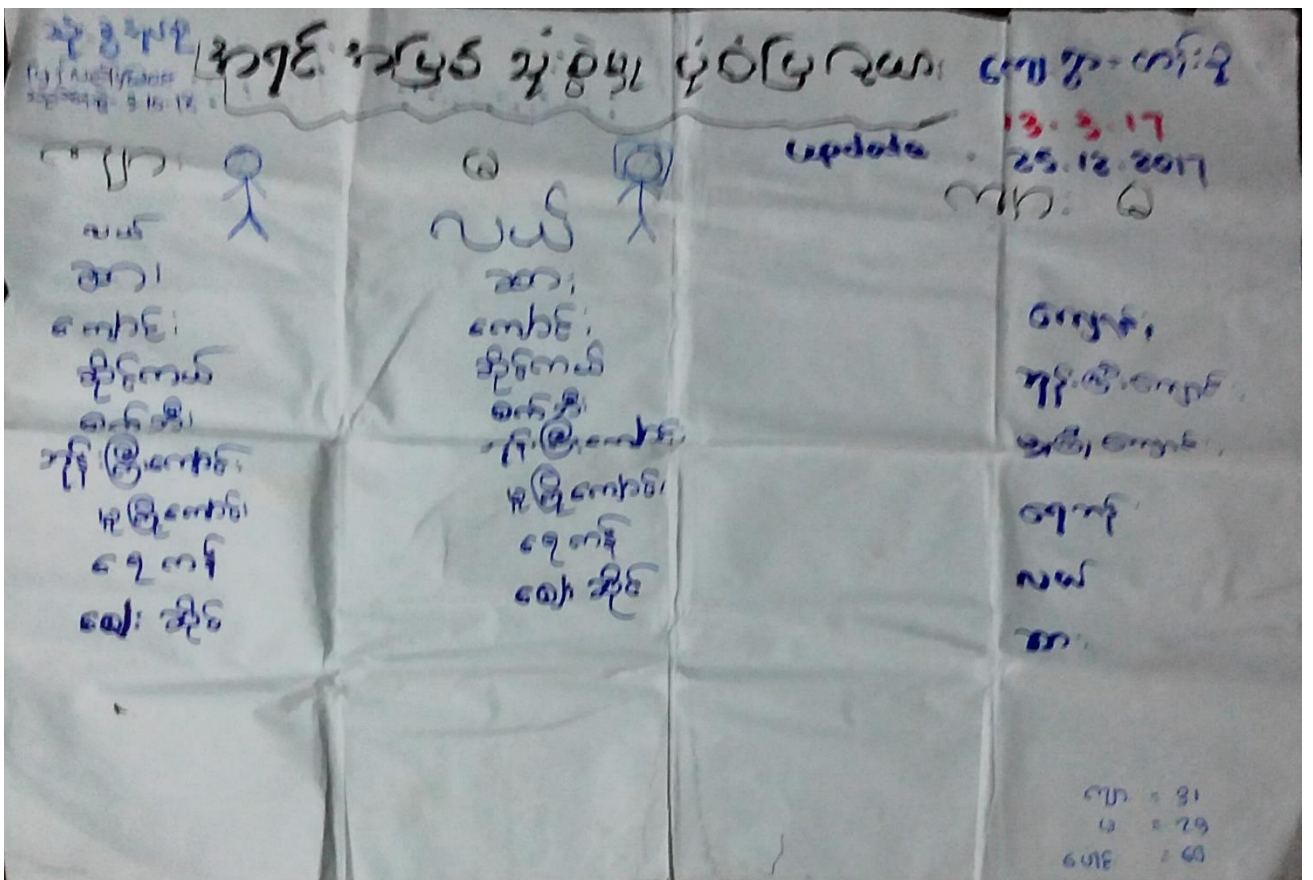 အရင်းအမြစ် သုံးစွဲမှု ပုံစံပြ ဇယား
ကျေးရွာ -
13.3.17
update . 25.12.2017
ကျား
မ
ကျား မ
လယ်
ယာ၊
ကျောင်း
ဆိုင်ကယ်
စက်ဘီး
ဘုန်းကြီးကျောင်း
မူကြိုကျောင်း
ရေကန်
ဈေးဆိုင်
လယ်
ယာ၊
ကျောင်း
ဆိုင်ကယ်
စက်ဘီး
ဘုန်းကြီးကျောင်း
မူကြိုကျောင်း
ရေကန်
ဈေးဆိုင်
ကျောင်း
ဘုန်းကြီးကျောင်း
မူကြိုကျောင်း
ရေကန်
လယ်
ယာ
ကျား = 31
မ = 29
ပေါင်း = 60